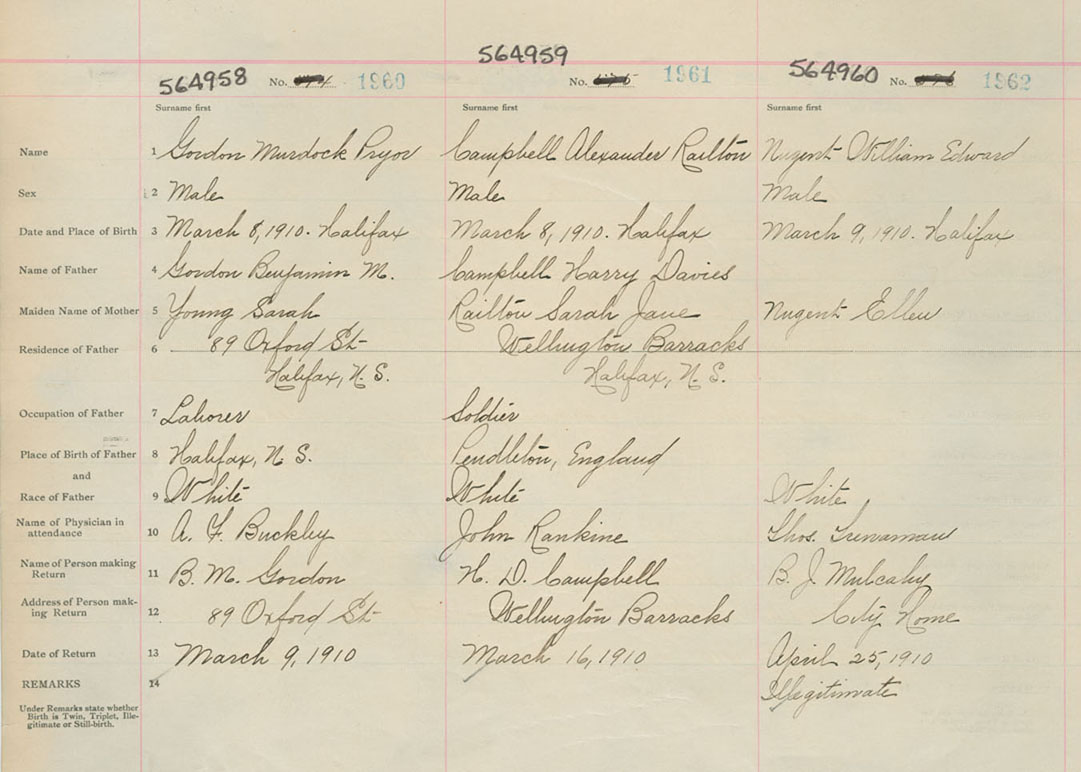 564958 No. 1960
564959 No. 1961
564960 No. 1962
Surname first Surname first Surname first
Name 1 Gordon Murdock Pryor Campbell Alexander Railton Nugent William Edward
Sex 2 Male Male Male
Date and Place of Birth 3 March 8, 1910. Halifax March 8, 1910. Halifax March 9, 1910. Halifax
Name of Father 4 Gordon Benjamin M. Campbell Harry Davies
Maiden Name of Mother 5 Young Sarah Railton Sarah Jane Nugent Ellen
Residence of Father 6 89 Oxford St Wellington Barracks
Halifax, N. S. Halifax, N. S.
Occupation of Father 7 Laborer Soldier
Place of Birth of Father 8 Halifax, N S. Pendleton, England
and
Race of Father 9 White White White
Name of Physician in
attendance 10 A. F. Buckley John Rankine Thos. Trenaman
Name of Person making
Return 11 B. M. Gordon H. D. Campbell B. J. Mulcahy
Address of Person mak-
ing Return 12 89 Oxford St Wellington Barracks City Home
Date of Return 13 March 9, 1910 March 16, 1910 April 25, 1910
REMARKS 14 Illegitimate
Under Remarks state whether
Birth is Twin, Triplet, Ille-
gitimate or Still-birth.